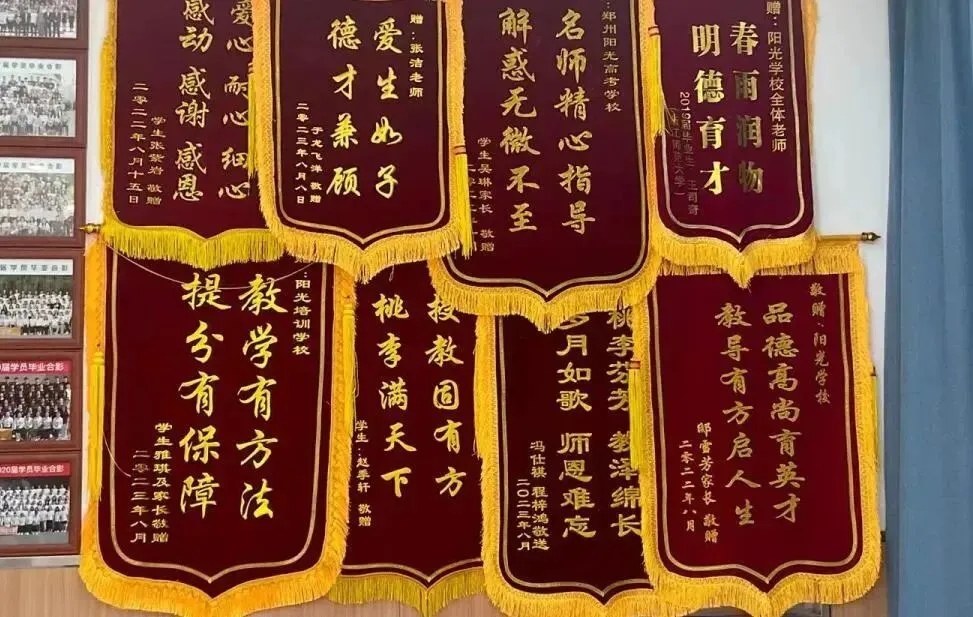 届学员毕业合影
届学员毕业合影
届学员毕业合影
020届学员毕业合影
爱心 耐心 细心
感动 感谢 感恩
学生张紫岩 敬赠
二零二二年八月十五日
赠:张洁老师
爱生如子
德才兼顾
于龙飞洋 敬赠
二零二三年八月八日
:郑州阳光高考学校
名师精心指导
解惑无微不至
学生吴琳家长 敬赠
赠:阳光学校全体老师
春雨润物
明德育才
2019届毕业生 王司奇
师范大学)
:阳光培训学校
教学有方法
提分有保障
学生雅琪及家长敬赠
二零二三年八月
授教固有方
桃李满天下
学生:赵季轩 敬赠
桃李芬芳 教泽绵长
岁月如歌 师恩难忘
冯仕祺 程梓鸿敬送
二〇二三年八月
敬赠:阳光学校
品德高尚育英才
教导有方启人生
邸雪芳家长 敬赠
二零二二年八月